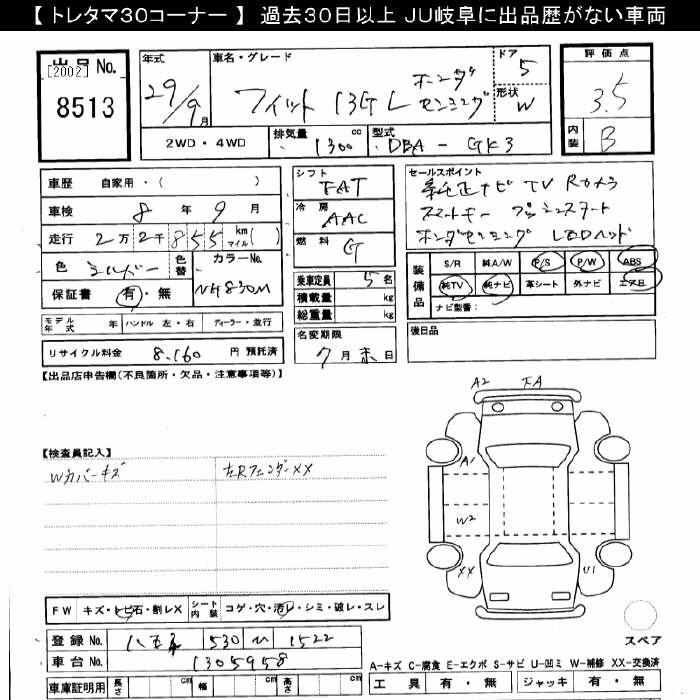 【 トレタマ30コーナー 】 過去30日以上 JU岐阜に出品歴がない車両
出品No. [2002] 8513
年式 29/9月
車名・グレード フィット 13G L ホンダセンシング
ドア 5
形状 W
評価点 3.5
内装 B
2WD・4WD
排気量 1300 cc
型式 DBA-GK3
車歴 自家用・( )
車検 8年 9月
走行 2万2千855 km マイル( )
色 シルバー
色替
カラーNo. NH830M
保証書 有・無
モデル年式 年 ハンドル 左・右 ディーラー・並行
リサイクル料金 8,160 円 預託済
シフト FAT
冷房 AAC
燃料 G
乗車定員 5名
積載量 kg
総重量 kg
名変期限 7月末日
セールスポイント
純正ナビ TV Rカメラ
スマートキー プッシュスタート
ホンダセンシング LEDヘッド
装備品 S/R 純A/W P/S P/W ABS
純TV 純ナビ 革シート 外ナビ エアB
ナビ型番:
後日品
【出品店申告欄(不良箇所・欠品・注意事項等)】
【検査員記入】
Wカバーキズ
左Rフェンダーxx
A2
A1
W2
XX
U1
スペア
FW キズ・トビ石・割レX シート内装 コゲ・穴・汚レ・シミ・破レ・スレ
登録No. 八王子 530 1522
車台No. 1305958
車庫証明用 長さ cm 幅 cm 高さ cm
A-キズ C-腐食 E-エクボ S-サビ U-凹ミ W-補修 XX-交換済
工具 有・無 ジャッキ 有・無